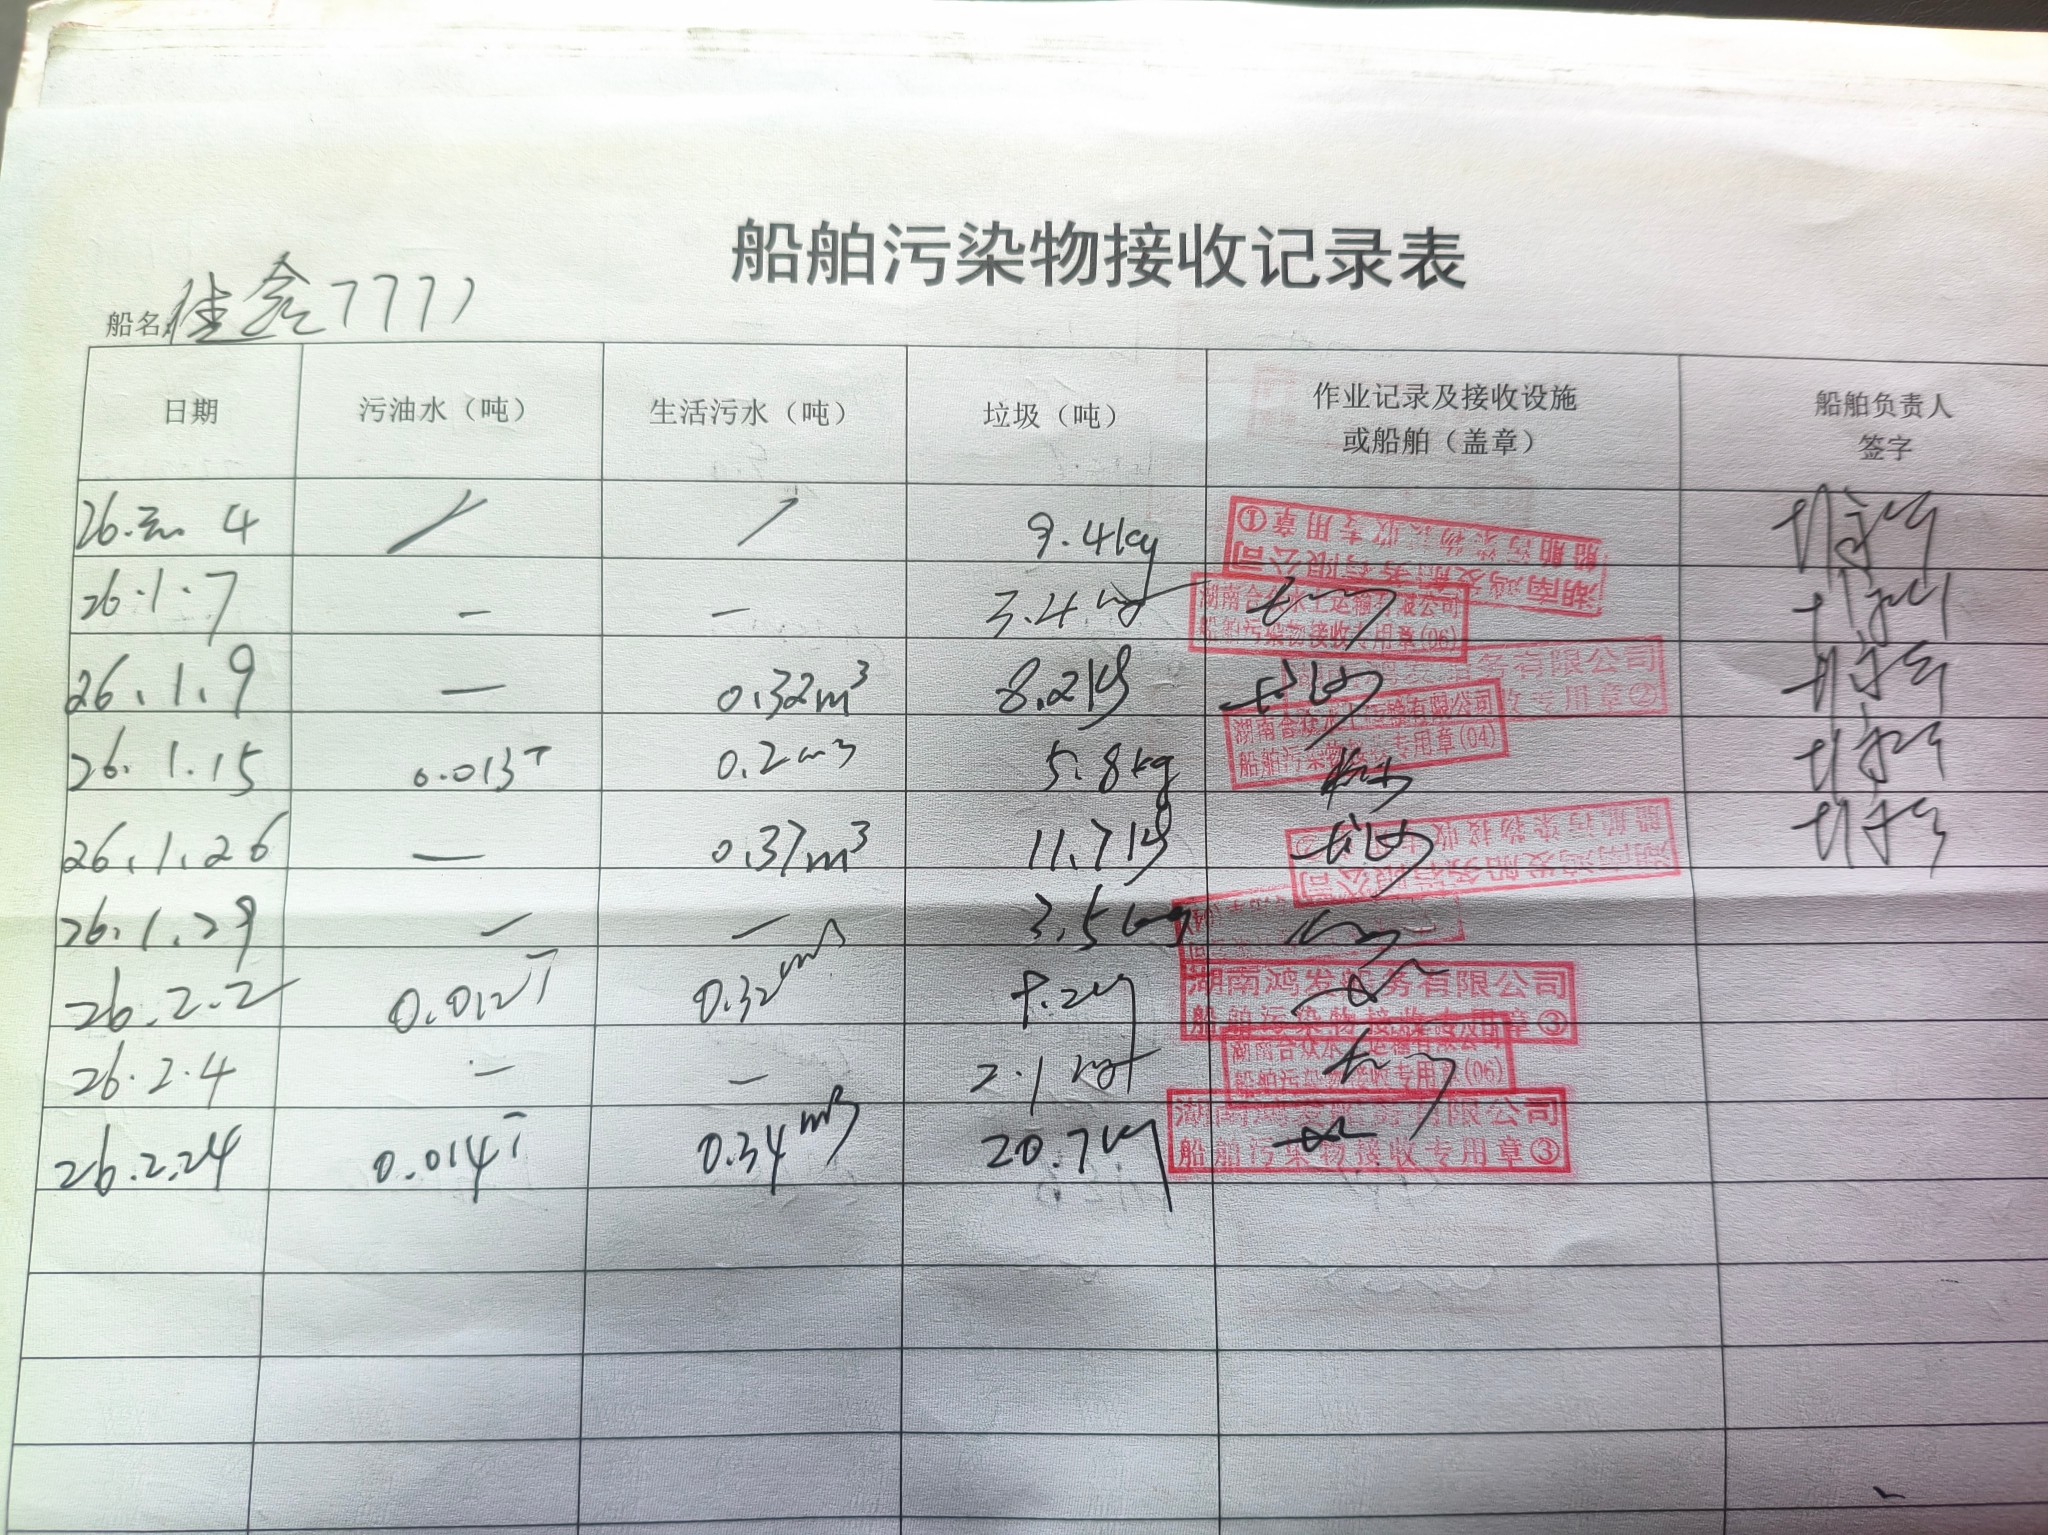 船舶污染物接收记录表
船名: 佳鑫7777
日期 污油水（吨） 生活污水（吨） 垃圾（吨） 作业记录及接收设施或船舶（盖章） 船舶负责人签字
26. 4 / / 9.4kg 湖南鸿发船务有限公司 船舶污染物接收专用章①
26.1.7 — — 3.4kg 湖南合众水上运输有限公司 船舶污染物接收专用章(06)
26.1.9 — 0.32m³ 8.2kg 湖南鸿发船务有限公司 船舶污染物接收专用章②
26.1.15 0.013T 0.2m³ 5.8kg 湖南合众水上运输有限公司 船舶污染物接收专用章(04)
26.1.26 — 0.37m³ 11.7kg 湖南鸿发船务有限公司 船舶污染物接收专用章②
26.1.29 — — 3.5kg
26.2.2 0.012T 0.32m³ 8.2kg 湖南鸿发船务有限公司 船舶污染物接收专用章③
26.2.4 — — 2.1kg 湖南合众水上运输有限公司 船舶污染物接收专用章(06)
26.2.24 0.014T 0.34m³ 20.7kg 湖南鸿发船务有限公司 船舶污染物接收专用章③